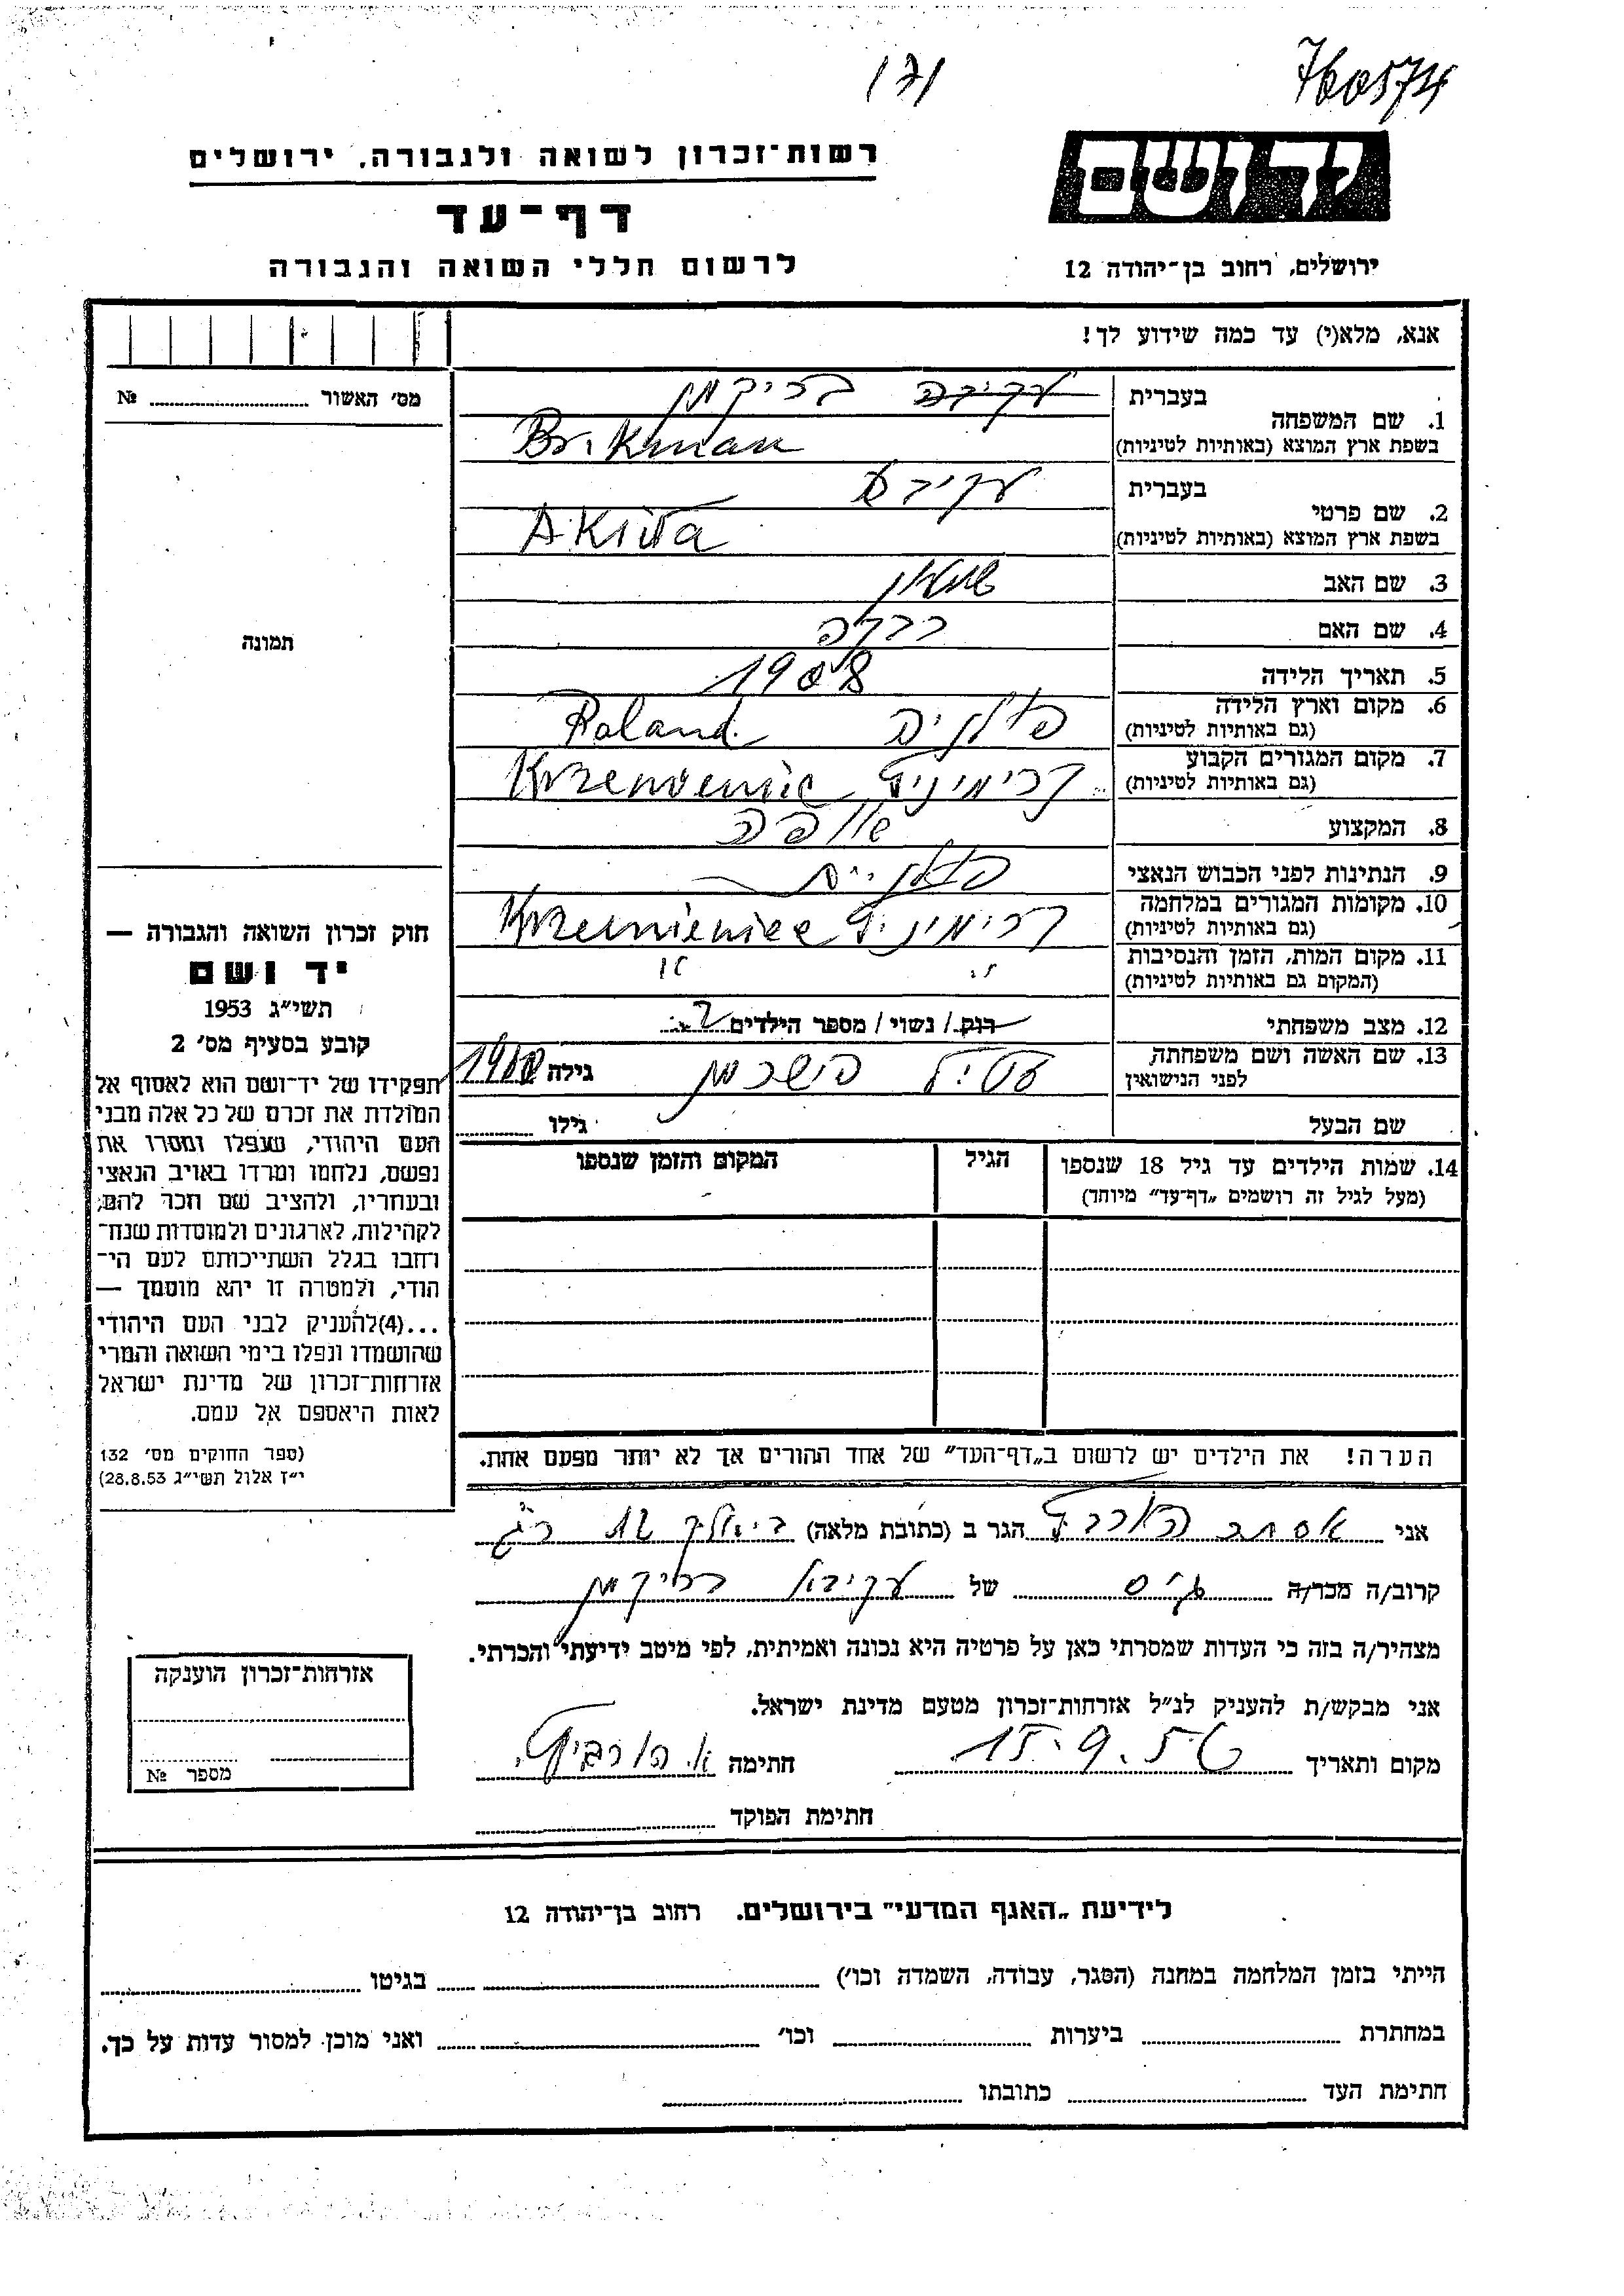 171
760574
רשות-זכרון לשואה ולגבורה, ירושלים
יד ושם
דף-עד
לרשום חללי השואה והגבורה
ירושלים, רחוב בן-יהודה 12
אנא, מלא(י) עד כמה שידוע לך!
מס׳ האשור № ........
1. שם המשפחה
בעברית עקיבה בריקמן
בשפת ארץ המוצא (באותיות לטיניות) Brikman
2. שם פרטי
בעברית עקיבא
בשפת ארץ המוצא (באותיות לטיניות) Akiva
3. שם האב שמעון
4. שם האם רבקה
5. תאריך הלידה 1908
6. מקום וארץ הלידה (גם באותיות לטיניות) פולניה Poland
7. מקום המגורים הקבוע (גם באותיות לטיניות) קרימיניץ
8. המקצוע
9. הנתינות לפני הכבוש הנאצי פולניה
10. מקומות המגורים במלחמה (גם באותיות לטיניות) קרימיניץ Krzemieniec
11. מקום המות, הזמן והנסיבות (המקום גם באותיות לטיניות)
12. מצב משפחתי רוק / נשוי / מספר הילדים 2
13. שם האשה ושם משפחתה לפני הנישואין פישרמן גילה
שם הבעל גילו ........
14. שמות הילדים עד גיל 18 שנספו (מעל לגיל זה רושמים „דף-עד״ מיוחד)
הגיל
המקום והזמן שנספו
הערה! את הילדים יש לרשום ב„דף-העד״ של אחד ההורים אך לא יותר מפעם אחת.
תמונה
חוק זכרון השואה והגבורה —
יד ושם
תשי״ג 1953
קובע בסעיף מס׳ 2
תפקידו של יד-ושם הוא לאסוף אל
המולדת את זכרם של כל אלה מבני
העם היהודי, שנפלו ומסרו את
נפשם, נלחמו ומרדו באויב הנאצי
ובעוזריו, ולהציב שם וזכר להם,
לקהילות, לארגונים ולמוסדות שנח-
רחבו בגלל השתייכותם לעם הי-
הודי, ולמטרה זו יהא מוסמך —
...(4) להעניק לבני העם היהודי
שהושמדו ונפלו בימי השואה והמרי
אזרחות-זכרון של מדינת ישראל
לאות היאספם אל עמם.
(ספר החוקים מס׳ 132
י״ז אלול תשי״ג 28.8.53)
אני אסתר הורביץ הגר ב (כתובת מלאה) ביאליק
קרוב/ה מכר/ה גיס של עקיבא בריקמן
מצהיר/ה בזה כי העדות שמסרתי כאן על פרטיה היא נכונה ואמיתית, לפי מיטב ידיעתי והכרתי.
אני מבקש/ת להעניק לנ״ל אזרחות-זכרון מטעם מדינת ישראל.
מקום ותאריך 15.9.56 חתימה א. הורביץ
חתימת הפוקד ........
אזרחות-זכרון הוענקה
מספר №
לידיעת „האגף המדעי״ בירושלים. רחוב בן-יהודה 12
הייתי בזמן המלחמה במחנה (הסגר, עבודה, השמדה וכו׳) ........ בגיטו ........
במחתרת ........ ביערות ........ וכו׳ ........ ואני מוכן למסור עדות על כך.
חתימת העד ........ כתובתו ........